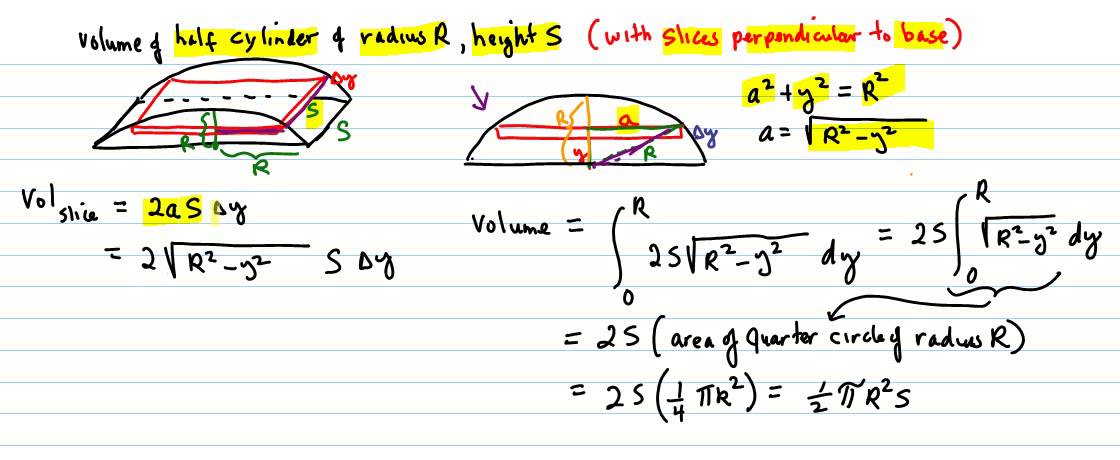 Volume of half cylinder of radius R, height S (with slices perpendicular to base)
Δy
S
S
R
R
R
a
Δy
y
R
a² + y² = R²
a = √(R² - y²)
Vol slice = 2a S Δy
= 2√(R² - y²) S Δy
Volume = ∫₀ᴿ 2S√(R² - y²) dy = 2S ∫₀ᴿ √(R² - y²) dy
= 2S (area of quarter circle of radius R)
= 2S (¼ πR²) = ½ π R² S